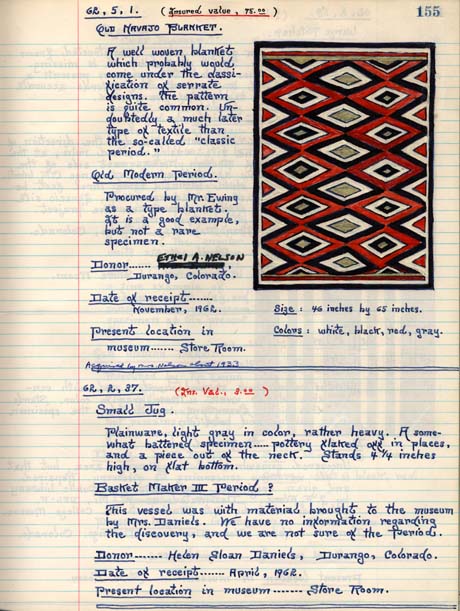 62, 5, 1. (Insured value, 75.00)
155
Old Navajo Blanket.
A well woven blanket
which probably would
come under the classi-
fication of serrate
designs. The pattern
is quite common. Un-
doubtedly a much later
type of textile than
the so-called "classic
period."
Old Modern Period.
Procured by Mr. Ewing
as a type blanket.
It is a good example,
but not a rare
specimen.
Donor...... Ethel A. Nelson,
Durango, Colorado.
Date of receipt.......
November, 1962.
Present location in
museum....... Store Room.
Size : 46 inches by 65 inches.
Colors : white, black, red, gray.
Acquired by Mrs Nelson about 1933
62, 2, 37. (Im. Val., 3.00 )
Small Jug.
Plainware, light gray in color, rather heavy. A some-
what battered specimen..... pottery flaked off in places,
and a piece out of the neck. Stands 4 1/4 inches
high, on flat bottom.
Basket Maker III Period ?
This vessel was with material brought to the museum
by Mrs. Daniels. We have no information regarding
the discovery, and we are not sure of the Period.
Donor----- Helen Sloan Daniels, Durango, Colorado.
Date of receipt....... April, 1962.
Present location in museum ------- Store Room.